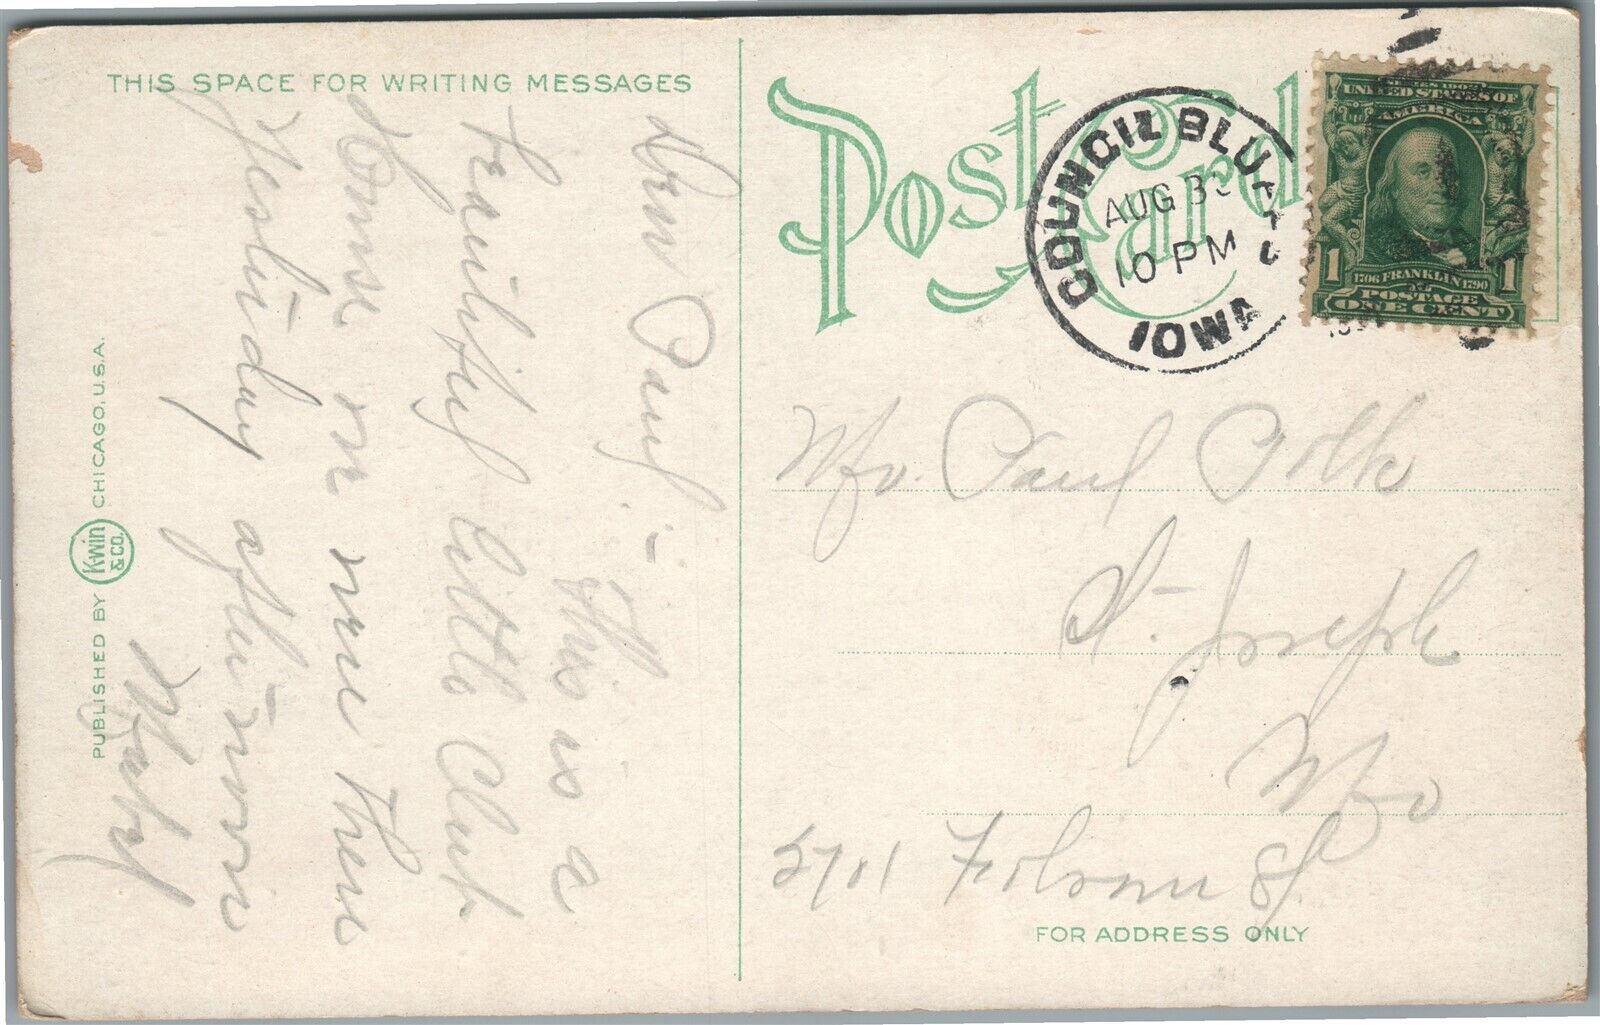 THIS SPACE FOR WRITING MESSAGES
Dear Paul: -
This is a
beautiful little Club
House on now there
Yesterday afternoon
PUBLISHED BY Kwin & CO. CHICAGO, U.S.A.
Post Card
COUNCIL BLUFFS
AUG 30
10 PM
IOWA
UNITED STATES OF
AMERICA
1 1706 FRANKLIN 1790 1
POSTAGE
ONE CENT
Mr. Paul Polk
St. Joseph
Mo
2701 Folsom St
FOR ADDRESS ONLY